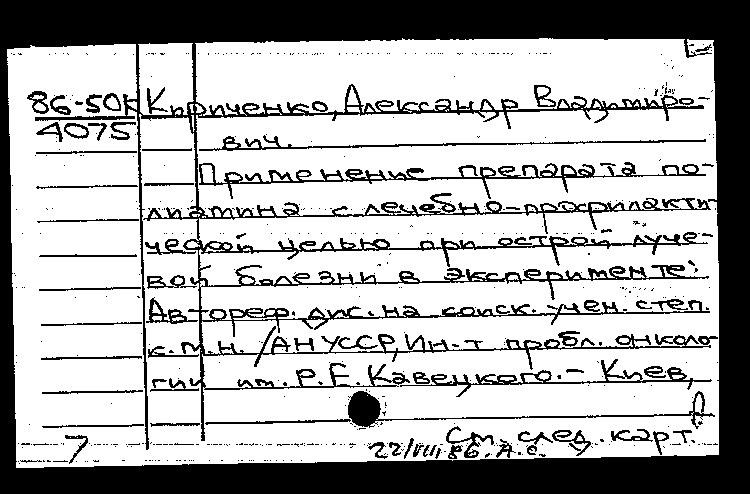 86-50К Кириченко, Александр Владимиро-
4075 вич.
Применение препарата по-
лиатина с лечебно-профилакти-
ческой целью при острой луче-
вой болезни в эксперименте:
Автореф. дис. на соиск. учен. степ.
к.м.н. /АН УССР, Ин-т пробл. онколо-
гии им. Р.Е. Кавецкого.- Киев,
См. след. карт.
7 22/VIII 86. А.С.